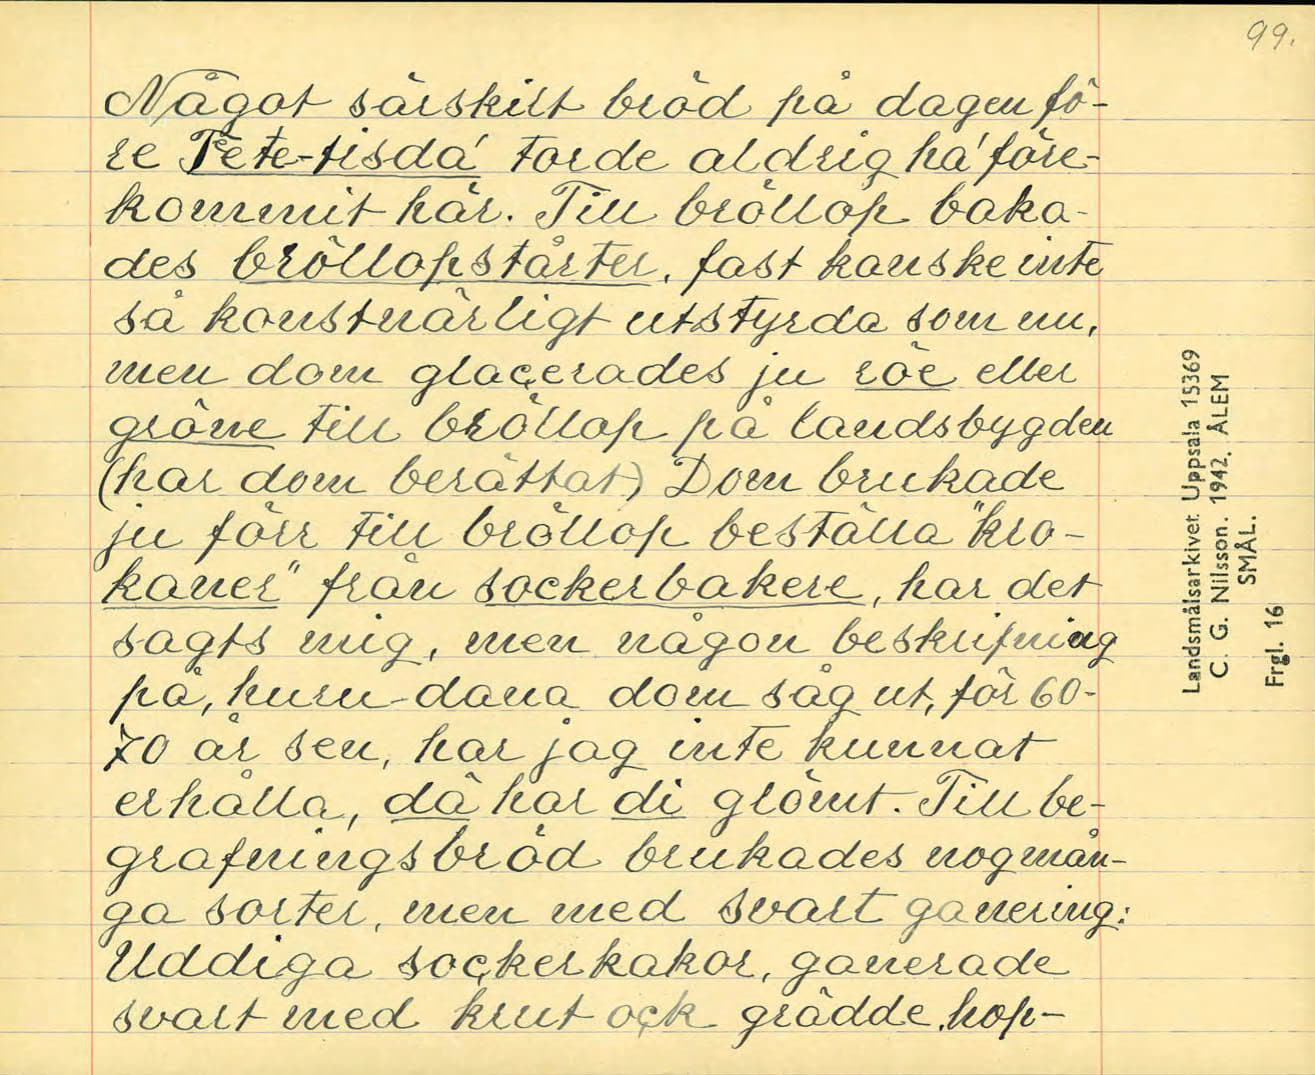 99.
Något särskilt bröd på dagen fö-
re Fete-tisda' torde aldrig ha' före-
kommit här. Till bröllop baka-
des bröllopstårter, fast kanske inte
så konstnärligt utstyrda som nu,
men dom glaçerades ju röe eller
gröne till bröllop på landsbygden
(har dom berättat) Dom brukade
ju förr till bröllop beställa "kro-
kaner" från sockerbakere, har det
sagts mig, men någon beskrifning
på, huru-dana dom såg ut, för 60-
70 år sen, har jag inte kunnat
erhålla, då har di glömt. Till be-
grafningsbröd brukades nog mån-
ga sorter, men med svart ganering:
Uddiga soçkerkakor, ganerade
svart med krut oçk grädde, hop-
Landsmålsarkivet Uppsala 15369
C. G. Nilsson. 1942. ÅLEM
SMÅL.
Frgl. 16